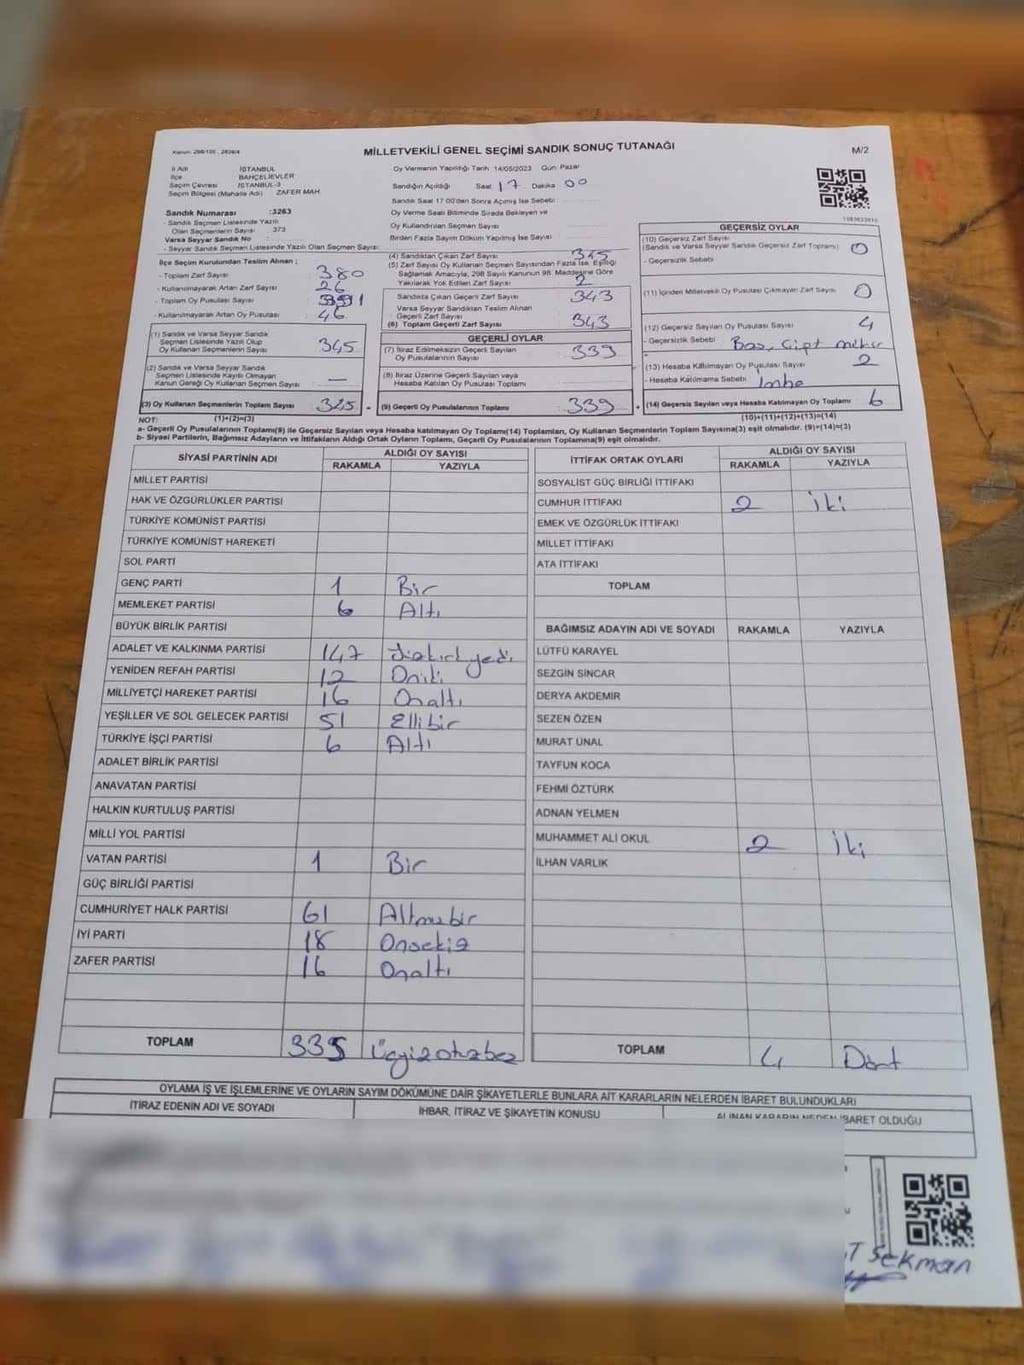 Kanun: 298/105 , 2839/4
MİLLETVEKİLİ GENEL SEÇİMİ SANDIK SONUÇ TUTANAĞI
M/2
İl Adı İSTANBUL
İlçe BAHÇELİEVLER
Seçim Çevresi İSTANBUL-3
Seçim Bölgesi (Mahalle Adı) ZAFER MAH
Oy Vermenin Yapıldığı Tarih 14/05/2023 Gün: Pazar
Sandığın Açıldığı Saat 17 Dakika 00
Sandık Saat 17:00'den Sonra Açılmış İse Sebebi
Oy Verme Saati Bitiminde Sırada Bekleyen ve
Oy Kullandırılan Seçmen Sayısı
Birden Fazla Sayım Döküm Yapılmış İse Sayısı
Sandık Numarası :3263
- Sandık Seçmen Listesinde Yazılı
Olan Seçmenlerin Sayısı : 373
Varsa Seyyar Sandık No :
- Seyyar Sandık Seçmen Listesinde Yazılı Olan Seçmen Sayısı:
İlçe Seçim Kurulundan Teslim Alınan ;
- Toplam Zarf Sayısı 380
- Kullanılmayarak Artan Zarf Sayısı 26
- Toplam Oy Pusulası Sayısı
- Kullanılmayarak Artan Oy Pusulası 46
(1) Sandık ve Varsa Seyyar Sandık
Seçmen Listesinde Yazılı Olup
Oy Kullanan Seçmenlerin Sayısı 345
(2) Sandık ve Varsa Seyyar Sandık
Seçmen Listesinde Kayıtlı Olmayan
Kanun Gereği Oy Kullanan Seçmen Sayısı —
(3) Oy Kullanan Seçmenlerin Toplam Sayısı 345
(4) Sandıktan Çıkan Zarf Sayısı 345
(5) Zarf Sayısı Oy Kullanan Seçmen Sayısından Fazla İse, Eşitliği
Sağlamak Amacıyla, 298 Sayılı Kanunun 98. Maddesine Göre
Yakılarak Yok Edilen Zarf Sayısı 2
Sandıkta Çıkan Geçerli Zarf Sayısı 343
Varsa Seyyar Sandıktan Teslim Alınan
Geçerli Zarf Sayısı
(6) Toplam Geçerli Zarf Sayısı 343
GEÇERLİ OYLAR
(7) İtiraz Edilmeksizin Geçerli Sayılan
Oy Pusulalarının Sayısı 339
(8) İtiraz Üzerine Geçerli Sayılan veya
Hesaba Katılan Oy Pusulası Toplamı
(9) Geçerli Oy Pusulalarının Toplamı 339
1083633910
GEÇERSİZ OYLAR
(10) Geçersiz Zarf Sayısı
(Sandık ve Varsa Seyyar Sandık Geçersiz Zarf Toplamı) 0
- Geçersizlik Sebebi
(11) İçinden Milletvekili Oy Pusulası Çıkmayan Zarf Sayısı 0
(12) Geçersiz Sayılan Oy Pusulası Sayısı 4
- Geçersizlik Sebebi
(13) Hesaba Katılmayan Oy Pusulası Sayısı 2
- Hesaba Katılmama Sebebi İmha
(14) Geçersiz Sayılan veya Hesaba Katılmayan Oy Toplamı 6
NOT: (1)+(2)=(3) (10)+(11)+(12)+(13)=(14)
a- Geçerli Oy Pusulalarının Toplamı(9) ile Geçersiz Sayılan veya Hesaba katılmayan Oy Toplamı(14) Toplamları, Oy Kullanan Seçmenlerin Toplam Sayısına(3) eşit olmalıdır. (9)+(14)=(3)
b- Siyasi Partilerin, Bağımsız Adayların ve İttifakların Aldığı Ortak Oyların Toplamı, Geçerli Oy Pusulalarının Toplamına(9) eşit olmalıdır.
SİYASİ PARTİNİN ADI ALDIĞI OY SAYISI
RAKAMLA YAZIYLA
MİLLET PARTİSİ
HAK VE ÖZGÜRLÜKLER PARTİSİ
TÜRKİYE KOMÜNİST PARTİSİ
TÜRKİYE KOMÜNİST HAREKETİ
SOL PARTİ
GENÇ PARTİ 1 Bir
MEMLEKET PARTİSİ 6 Altı
BÜYÜK BİRLİK PARTİSİ
ADALET VE KALKINMA PARTİSİ 147
YENİDEN REFAH PARTİSİ 12 Oniki
MİLLİYETÇİ HAREKET PARTİSİ 16 Onaltı
YEŞİLLER VE SOL GELECEK PARTİSİ 51 Ellibir
TÜRKİYE İŞÇİ PARTİSİ 6 Altı
ADALET BİRLİK PARTİSİ
ANAVATAN PARTİSİ
HALKIN KURTULUŞ PARTİSİ
MİLLİ YOL PARTİSİ
VATAN PARTİSİ 1 Bir
GÜÇ BİRLİĞİ PARTİSİ
CUMHURİYET HALK PARTİSİ 61 Altmışbir
İYİ PARTİ 18 Onsekiz
ZAFER PARTİSİ 16 Onaltı
TOPLAM 335 Üçyüzotuzbeş
İTTİFAK ORTAK OYLARI ALDIĞI OY SAYISI
RAKAMLA YAZIYLA
SOSYALİST GÜÇ BİRLİĞİ İTTİFAKI
CUMHUR İTTİFAKI 2 İki
EMEK VE ÖZGÜRLÜK İTTİFAKI
MİLLET İTTİFAKI
ATA İTTİFAKI
TOPLAM
BAĞIMSIZ ADAYIN ADI VE SOYADI RAKAMLA YAZIYLA
LÜTFÜ KARAYEL
SEZGİN SİNCAR
DERYA AKDEMİR
SEZEN ÖZEN
MURAT ÜNAL
TAYFUN KOCA
FEHMİ ÖZTÜRK
ADNAN YELMEN
MUHAMMET ALİ OKUL 2 İki
İLHAN VARLIK
TOPLAM 4 Dört
OYLAMA İŞ VE İŞLEMLERİNE VE OYLARIN SAYIM DÖKÜMÜNE DAİR ŞİKAYETLERLE BUNLARA AİT KARARLARIN NELERDEN İBARET BULUNDUKLARI
İTİRAZ EDENİN ADI VE SOYADI İHBAR, İTİRAZ VE ŞİKAYETİN KONUSU ALINAN KARARIN NEDEN İBARET OLDUĞU
Sekman